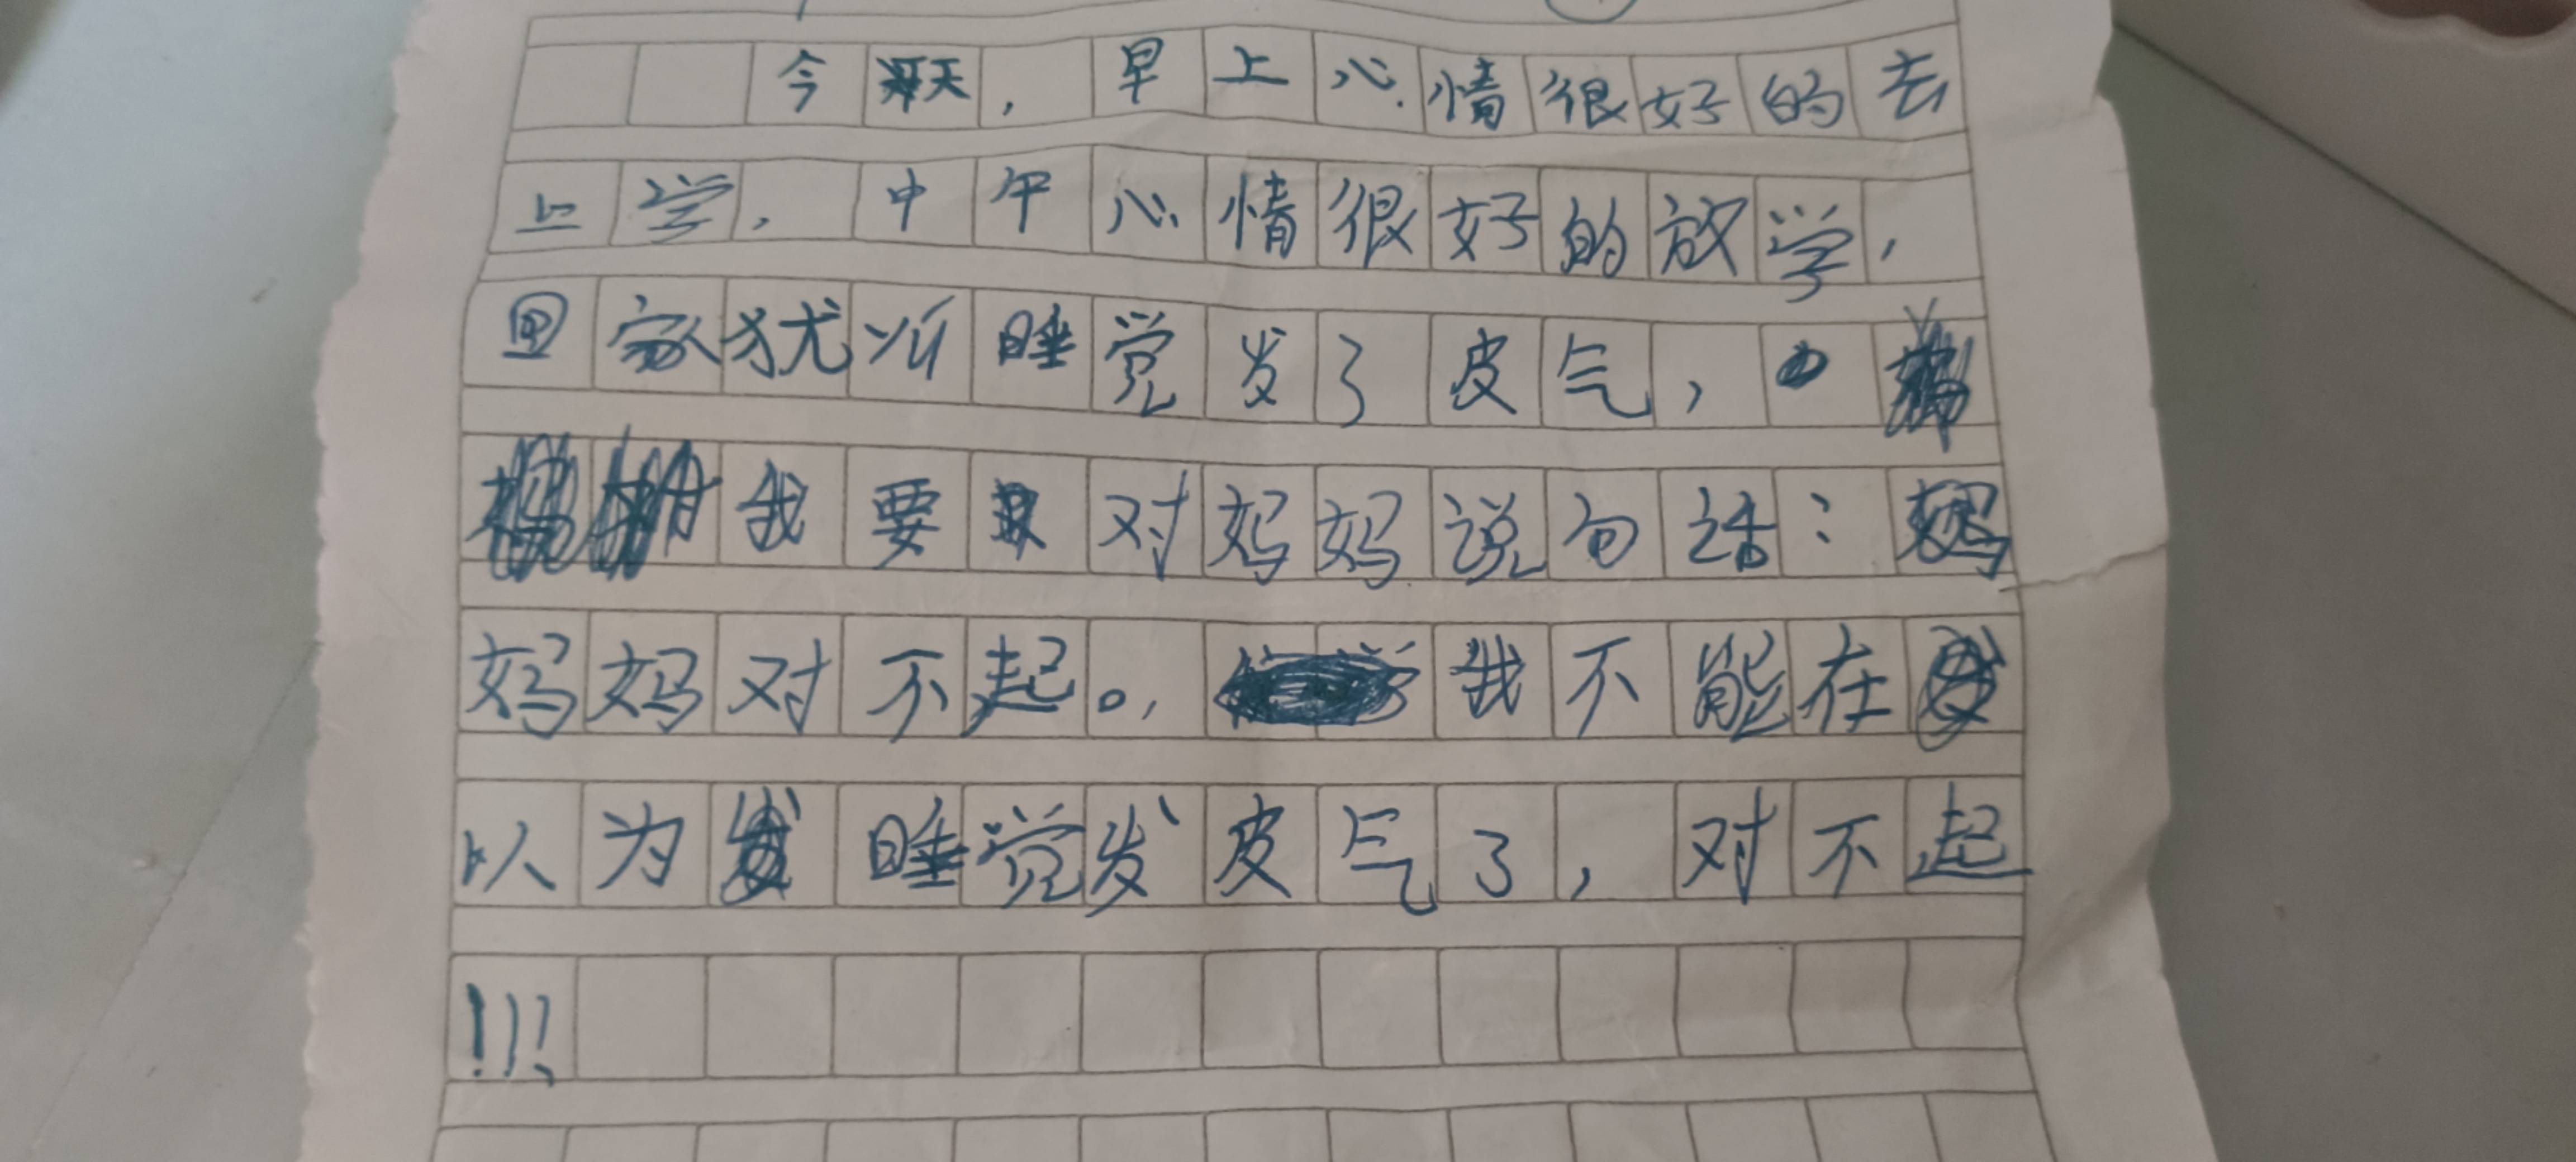 今天，早上心情很好的去
上学，中午心情很好的放学，
回家犹为睡觉发了皮气，
我要对妈妈说句话：妈
妈妈对不起。，我不能在
以为睡觉发皮气了，对不起
!!!